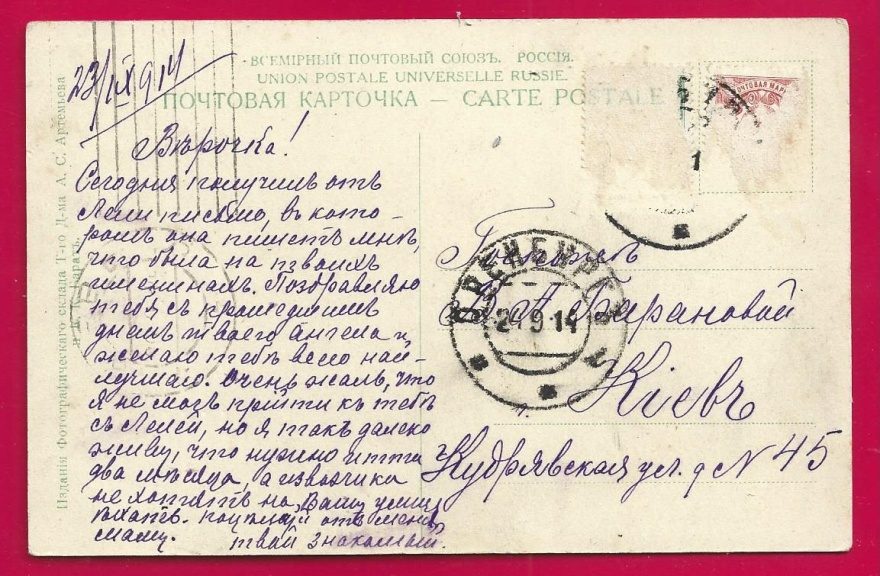 23/IX 914
ВСЕМІРНЫЙ ПОЧТОВЫЙ СОЮЗЪ. РОССІЯ.
UNION POSTALE UNIVERSELLE RUSSIE.
ПОЧТОВАЯ КАРТОЧКА — CARTE POSTALE
ПОЧТОВАЯ МАРК
1
Изданія Фотографическаго склада Т-го Д-ма А. С. Артемьева
Вѣрочка!
Сегодня получилъ отъ
Лели письмо, въ кото-
ромъ она пишетъ мнѣ,
что была на твоихъ
именинахъ. Поздравляю
тебя съ прошедшимъ
днемъ твоего Ангела и
желаю тебѣ всего най-
лучшаго. Очень жаль, что
я не могъ прійти къ тебѣ
съ Лелей, но я такъ далеко
живу, что нужно итти
два мѣсяца, а извозчики
не хотятъ на Вашу улицу
ѣхать. Поцѣлуй отъ меня
маму. твой знакомый.
ОРЕНБУРГЪ
24 9 14
Госпожѣ
В. А. Барановой
Кіевъ
Кудрявская ул. д N 45